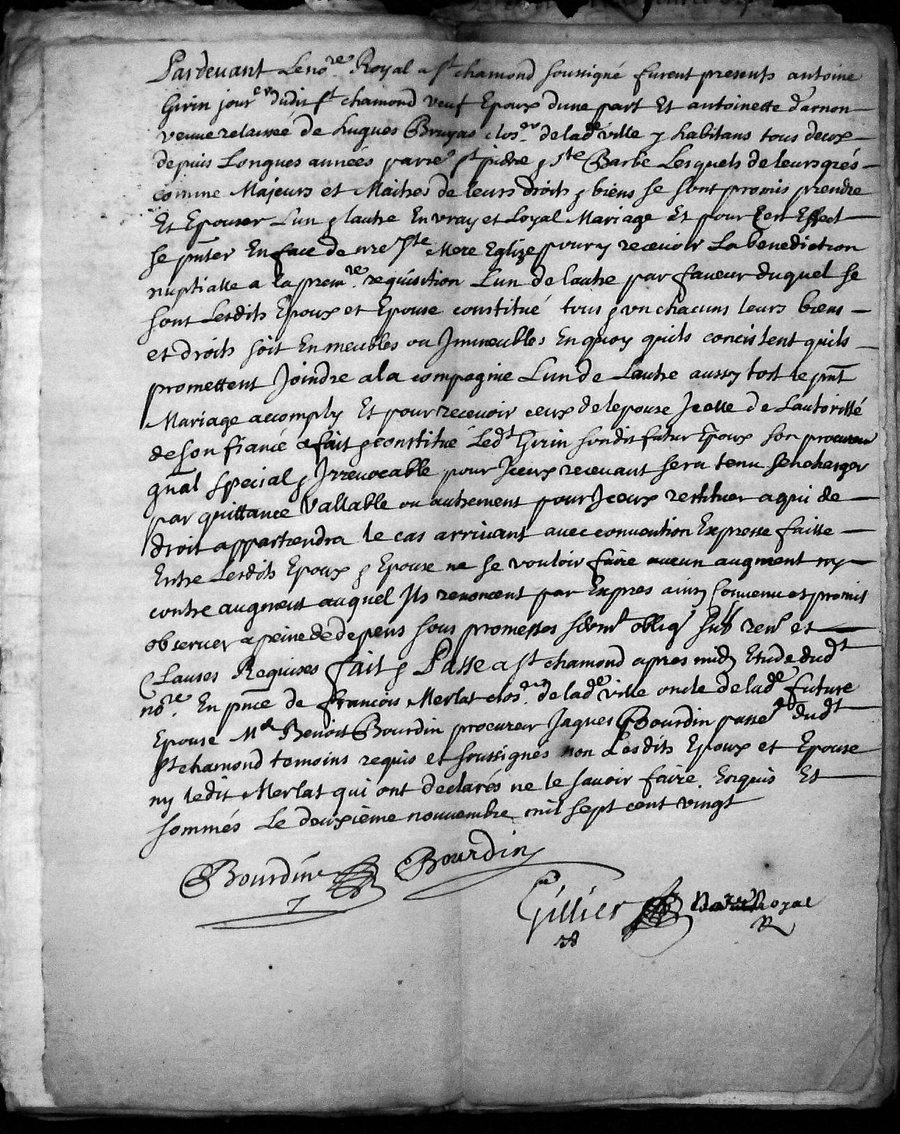 Pardevant Le no.re Royal a St chamond soussigné furent presents antoine
Girin jour.er dudit St chamond veuf Epoux dune part Et antoinette darnon
veuve relaissée de hugues Bruyas clos.er de lad.e ville y habitans tous deux
depuis Longues années parr.e St pierre & Ste Barbe Lesquels de leurs grés
comme Majeurs et Maitres de leurs droits & biens se sont promis prendre
Et Epouser Lun & lautre En vray et Loyal Mariage Et pour Cet Effect
se pnter En face de nre Ste Mere Eglize pour y recevoir La benediction
nuptialle a la prem.re requisition Lun de lautre par faveur duquel se
sont Lesdits Epoux et Epouse constitué tous & vn chacuns leurs biens
et droits soit En meubles ou Immeubles En quoy quils concistent quils
promettent Joindre a la compagnie Lun de Lautre aussy tost le pnt
Mariage accomply Et pour recevoir ceux de lepouse Icelle de Lautorité
de son fiancé a fait & constitué Led.t Girin sondit futur Epoux son procureur
gnal special & Irrevocable pour Iceux recevant sera tenu se charger
par quittance Vallable ou autrement pour Iceux restituer a qui de
droit appartiendra le cas arrivant avec convention Expresse faitte
Entre Lesdits Epoux & Epouse ne se vouloir faire aucun augment ny
contre augment auquel Ils renoncent par Expres ainsy convenu et promis
observer a peine de depens sous promesses serm.t oblig.on sub.on ren.on et
Clauses Requises fait & Passé a St chamond apres midy Etude dud.t
no.re En pnce de François Merlat clos.er de lad.e ville oncle de lad.e future
Epouse M.e Benoit Bourdin procureur Jaques Bourdin dud.t
St chamond temoins requis et soussignés non Lesdits Epoux et Epouse
ny ledit Merlat qui ont declarés ne le savoir faire Enquis Et
sommés Le deuxième nouvembre mil sept cent vingt
Bourdin Bourdin
Gillier No.re Royal